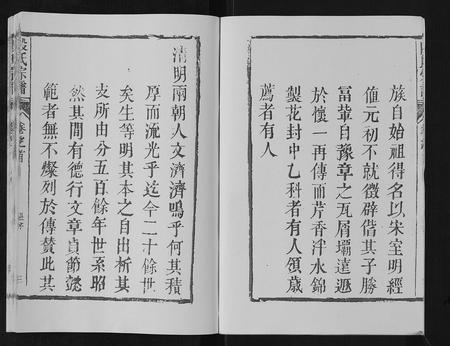 族自始祖得名以宋室明經
值元初不就徵辟偕其子勝
冨輩自豫章之瓦屑壩達遯
於懷一再傳而芹香泮水錦
製花封中乙科者有人領歲
薦者有人
清明兩朝人文濟濟嗚乎何其積
厚而流光乎迄今二十餘世
矣生等明其本之自出析其
支所由分五百餘年世系昭
然其間有德行文章貞節懿
範者無不燦列於傳賛此其
氏宗譜
卷之首